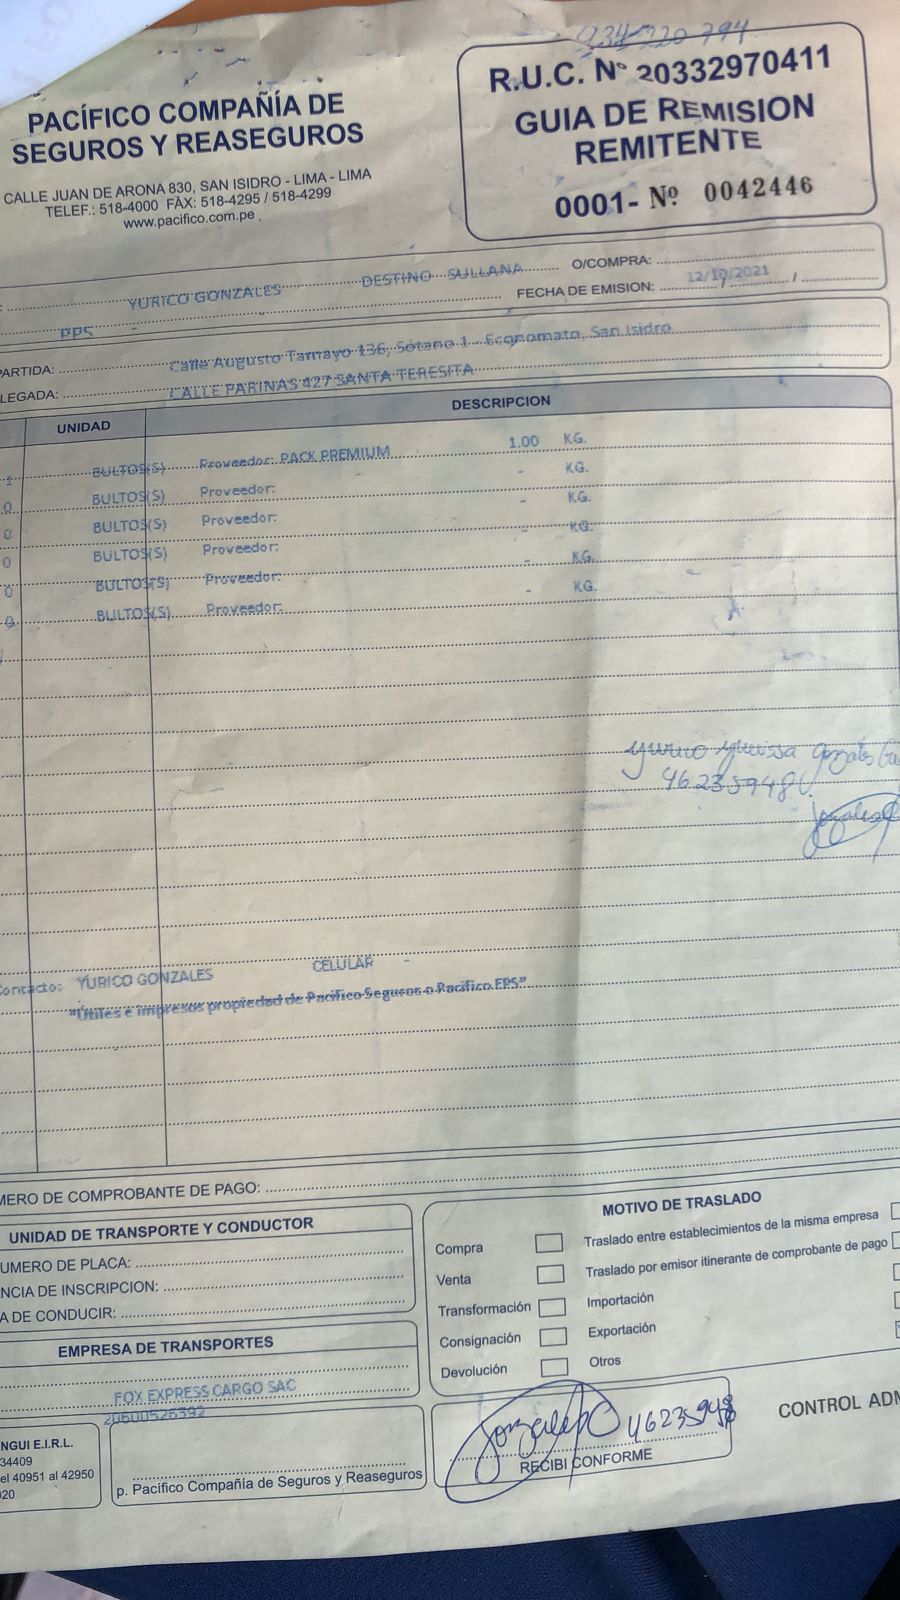 934720794
PACÍFICO COMPAÑÍA DE
SEGUROS Y REASEGUROS
CALLE JUAN DE ARONA 830, SAN ISIDRO - LIMA - LIMA
TELEF.: 518-4000 FAX: 518-4295 / 518-4299
www.pacifico.com.pe
R.U.C. Nº 20332970411
GUIA DE REMISION
REMITENTE
0001- Nº 0042446
YURICO GONZALES DESTINO SULLANA O/COMPRA:
PPS FECHA DE EMISION: 12/10/2021 /
PARTIDA: Calle Augusto Tamayo 136, Sótano 1 - Economato, San Isidro
LEGADA: CALLE PARINAS 427 SANTA TERESITA
UNIDAD DESCRIPCION
1 BULTOS(S) Proveedor: PACK PREMIUM 1.00 KG.
0 BULTOS(S) Proveedor: - KG.
0 BULTOS(S) Proveedor: - KG.
0 BULTOS(S) Proveedor: - KG.
0 BULTOS(S) Proveedor: - KG.
0 BULTOS(S) Proveedor: - KG.
Yurico Gonzales
46235948
Contacto: YURICO GONZALES CELULAR -
"Útiles e impresos propiedad de Pacífico Seguros o Pacífico EPS"
MERO DE COMPROBANTE DE PAGO:
UNIDAD DE TRANSPORTE Y CONDUCTOR
UMERO DE PLACA:
NCIA DE INSCRIPCION:
A DE CONDUCIR:
EMPRESA DE TRANSPORTES
FOX EXPRESS CARGO SAC
20600526392
MOTIVO DE TRASLADO
Compra
Venta
Transformación
Consignación
Devolución
Traslado entre establecimientos de la misma empresa
Traslado por emisor itinerante de comprobante de pago
Importación
Exportación
Otros
NGUI E.I.R.L.
34409
el 40951 al 42950
020
p. Pacífico Compañía de Seguros y Reaseguros
46235948
RECIBI CONFORME
CONTROL ADM